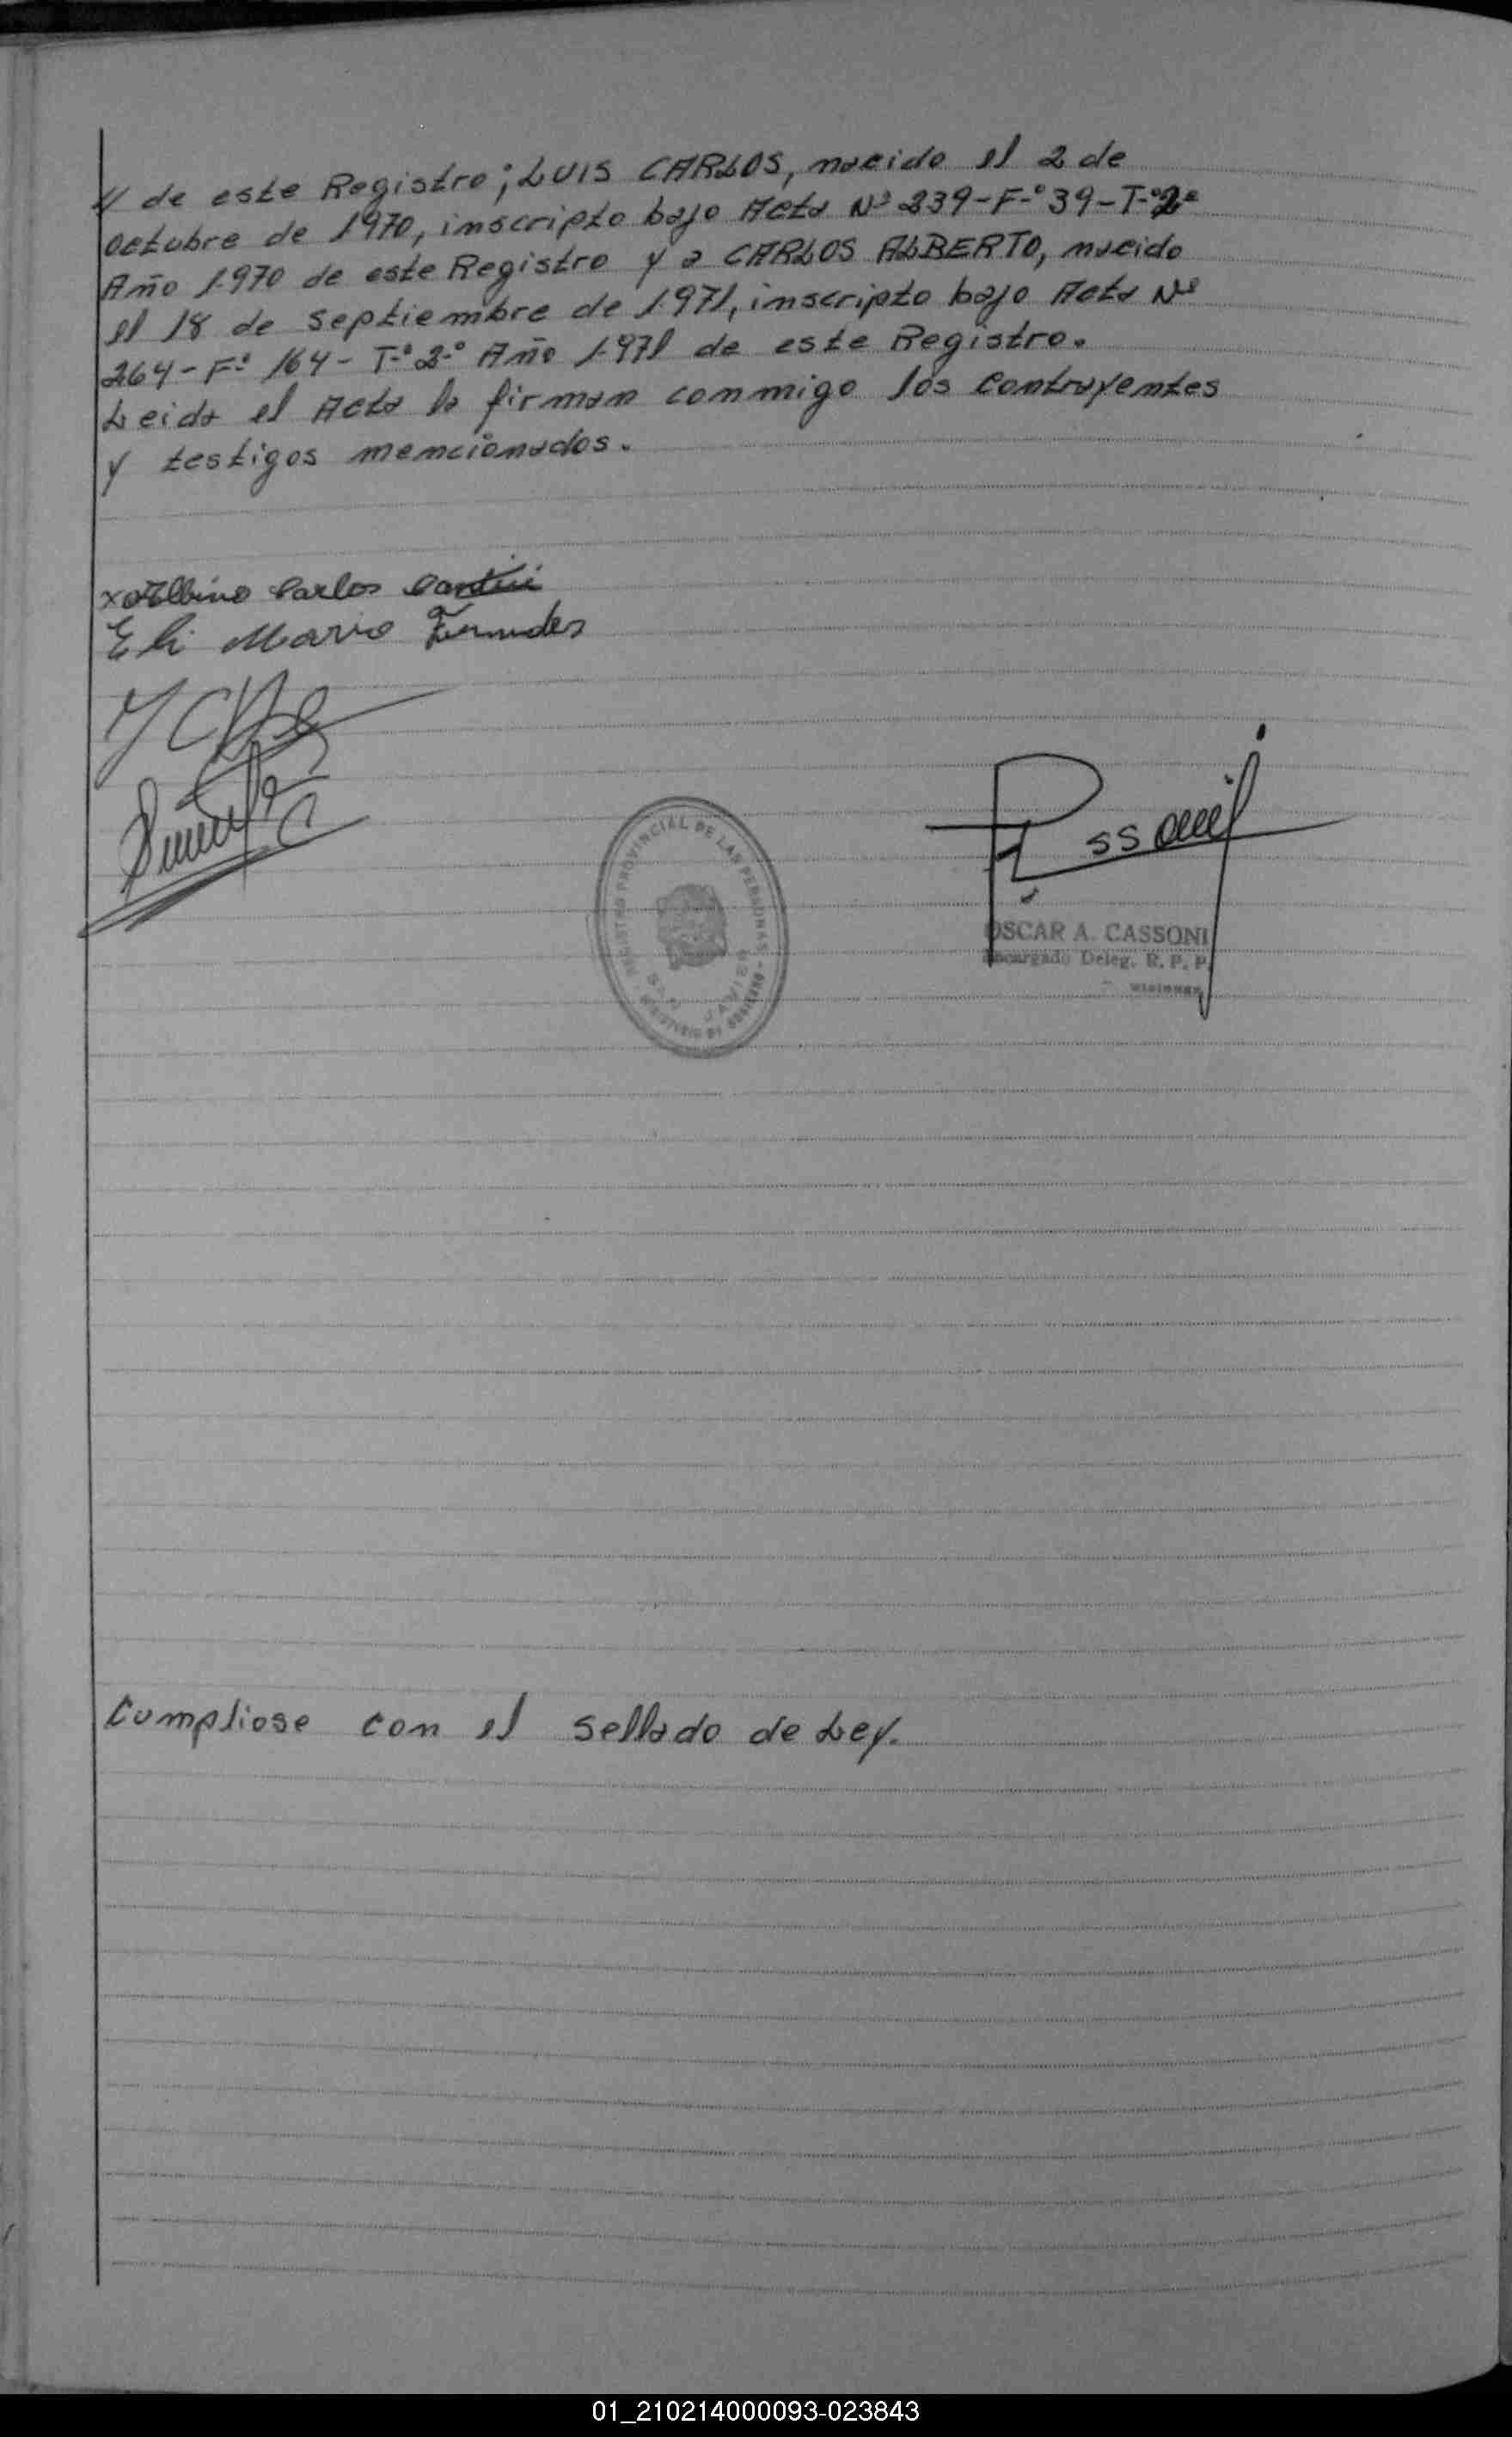 // de este Registro; LUIS CARLOS, nacido el 2 de
Octubre de 1970, inscripto bajo Acta Nº 239-F-º 39-T-º2º
Año 1.970 de este Registro y a CARLOS ALBERTO, nacido
el 18 de Septiembre de 1.971, inscripto bajo Acta Nº
264-F-º 164- T-º 2-º Año 1.971 de este Registro.
Leida el Acta la firman conmigo los Contrayentes
y testigos mencionados.
x Albino Carlos
Eli Mario
REGISTRO PROVINCIAL DE LAS PERSONAS
SAN JAVIER
MINISTERIO DE GOBIERNO
OSCAR A. CASSONI
Encargado Deleg. R. P. P.
Misiones
Cumpliose con el sellado de Ley.
01_210214000093-023843